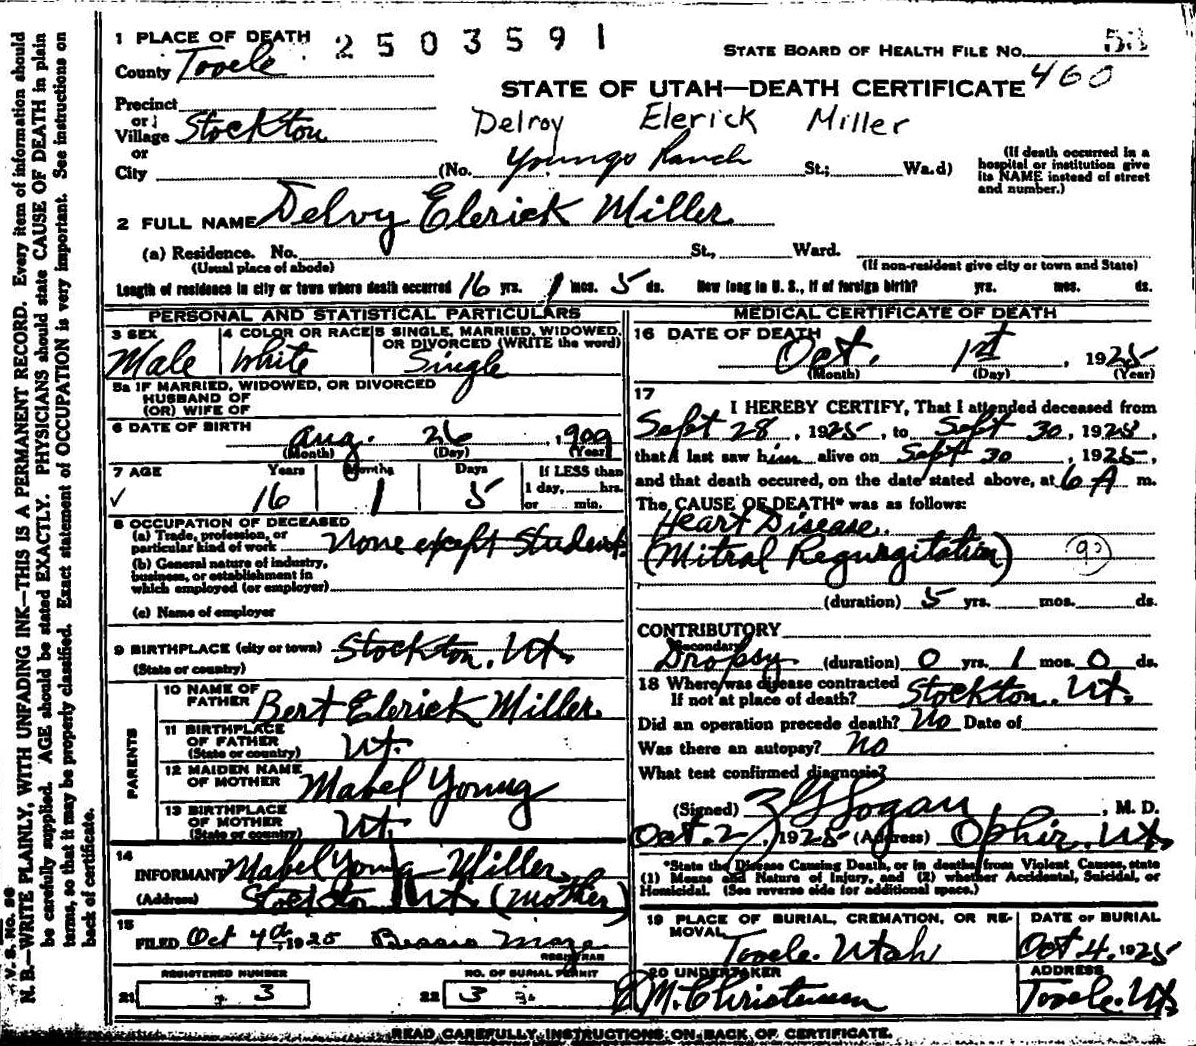 1 PLACE OF DEATH 2503591
STATE BOARD OF HEALTH FILE No. 53
County Tooele
460
STATE OF UTAH—DEATH CERTIFICATE
Precinct
or
Village Stockton
Delroy Elerick Miller
or
City (No. Youngs Ranch St.; Wa.d)
(If death occurred in a hospital or institution give its NAME instead of street and number.)
2 FULL NAME Delroy Elerick Miller
(a) Residence. No. St., Ward.
(Usual place of abode) (If non-resident give city or town and State)
Length of residence in city or town where death occurred 16 yrs. 1 mos. 5 ds. How long in U. S., if of foreign birth? yrs. mos. ds.
PERSONAL AND STATISTICAL PARTICULARS
3 SEX Male
4 COLOR OR RACE White
5 SINGLE, MARRIED, WIDOWED, OR DIVORCED (WRITE the word) Single
5a IF MARRIED, WIDOWED, OR DIVORCED
HUSBAND OF
(OR) WIFE OF
6 DATE OF BIRTH Aug. 26, 1909
(Month) (Day) (Year)
7 AGE Years Months Days If LESS than
✓ 16 1 5 1 day, hrs.
or min.
8 OCCUPATION OF DECEASED
(a) Trade, profession, or
particular kind of work None except Student
(b) General nature of industry,
business, or establishment in
which employed (or employer)
(c) Name of employer
9 BIRTHPLACE (city or town) Stockton, Ut.
(State or country)
PARENTS
10 NAME OF
FATHER Bert Elerick Miller.
11 BIRTHPLACE
OF FATHER Ut.
(State or country)
12 MAIDEN NAME
OF MOTHER Mabel Young
13 BIRTHPLACE
OF MOTHER Ut.
(State or country)
14
INFORMANT Mabel Young Miller,
(Address) Stockton Ut. (Mother)
15
FILED Oct 4th 1925 Bessie
REGISTRAR
REGISTERED NUMBER NO. OF BURIAL PERMIT
21 3 22 3
MEDICAL CERTIFICATE OF DEATH
16 DATE OF DEATH
Oct. 1st, 1925
(Month) (Day) (Year)
17
I HEREBY CERTIFY, That I attended deceased from
Sept 28, 1925, to Sept 30, 1925,
that I last saw him alive on Sept 30, 1925,
and that death occured, on the date stated above, at 6 A m.
The CAUSE OF DEATH* was as follows:
Heart Disease.
(Mitral Regurgitation) (90)
(duration) 5 yrs. mos. ds.
CONTRIBUTORY
Secondary
Dropsy (duration) 0 yrs. 1 mos. 0 ds.
18 Where was disease contracted
If not at place of death? Stockton, Ut.
Did an operation precede death? No Date of
Was there an autopsy? No
What test confirmed diagnosis?
(Signed) Logan, M. D.
Oct. 2, 1925 (Address) Ophir, Ut.
*State the Disease Causing Death, or in deaths from Violent Causes, state
(1) Means and Nature of Injury, and (2) whether Accidental, Suicidal, or
Homicidal. (See reverse side for additional space.)
19 PLACE OF BURIAL, CREMATION, OR REMOVAL Tooele, Utah
DATE OF BURIAL Oct 4. 1925
20 UNDERTAKER M. Christensen
ADDRESS Tooele, Ut.
READ CAREFULLY INSTRUCTIONS ON BACK OF CERTIFICATE.
V. S. No. 98
N. B.—WRITE PLAINLY, WITH UNFADING INK—THIS IS A PERMANENT RECORD. Every item of information should
be carefully supplied. AGE should be stated EXACTLY. PHYSICIANS should state CAUSE OF DEATH in plain
terms, so that it may be properly classified. Exact statement of OCCUPATION is very important. See instructions on
back of certificate.